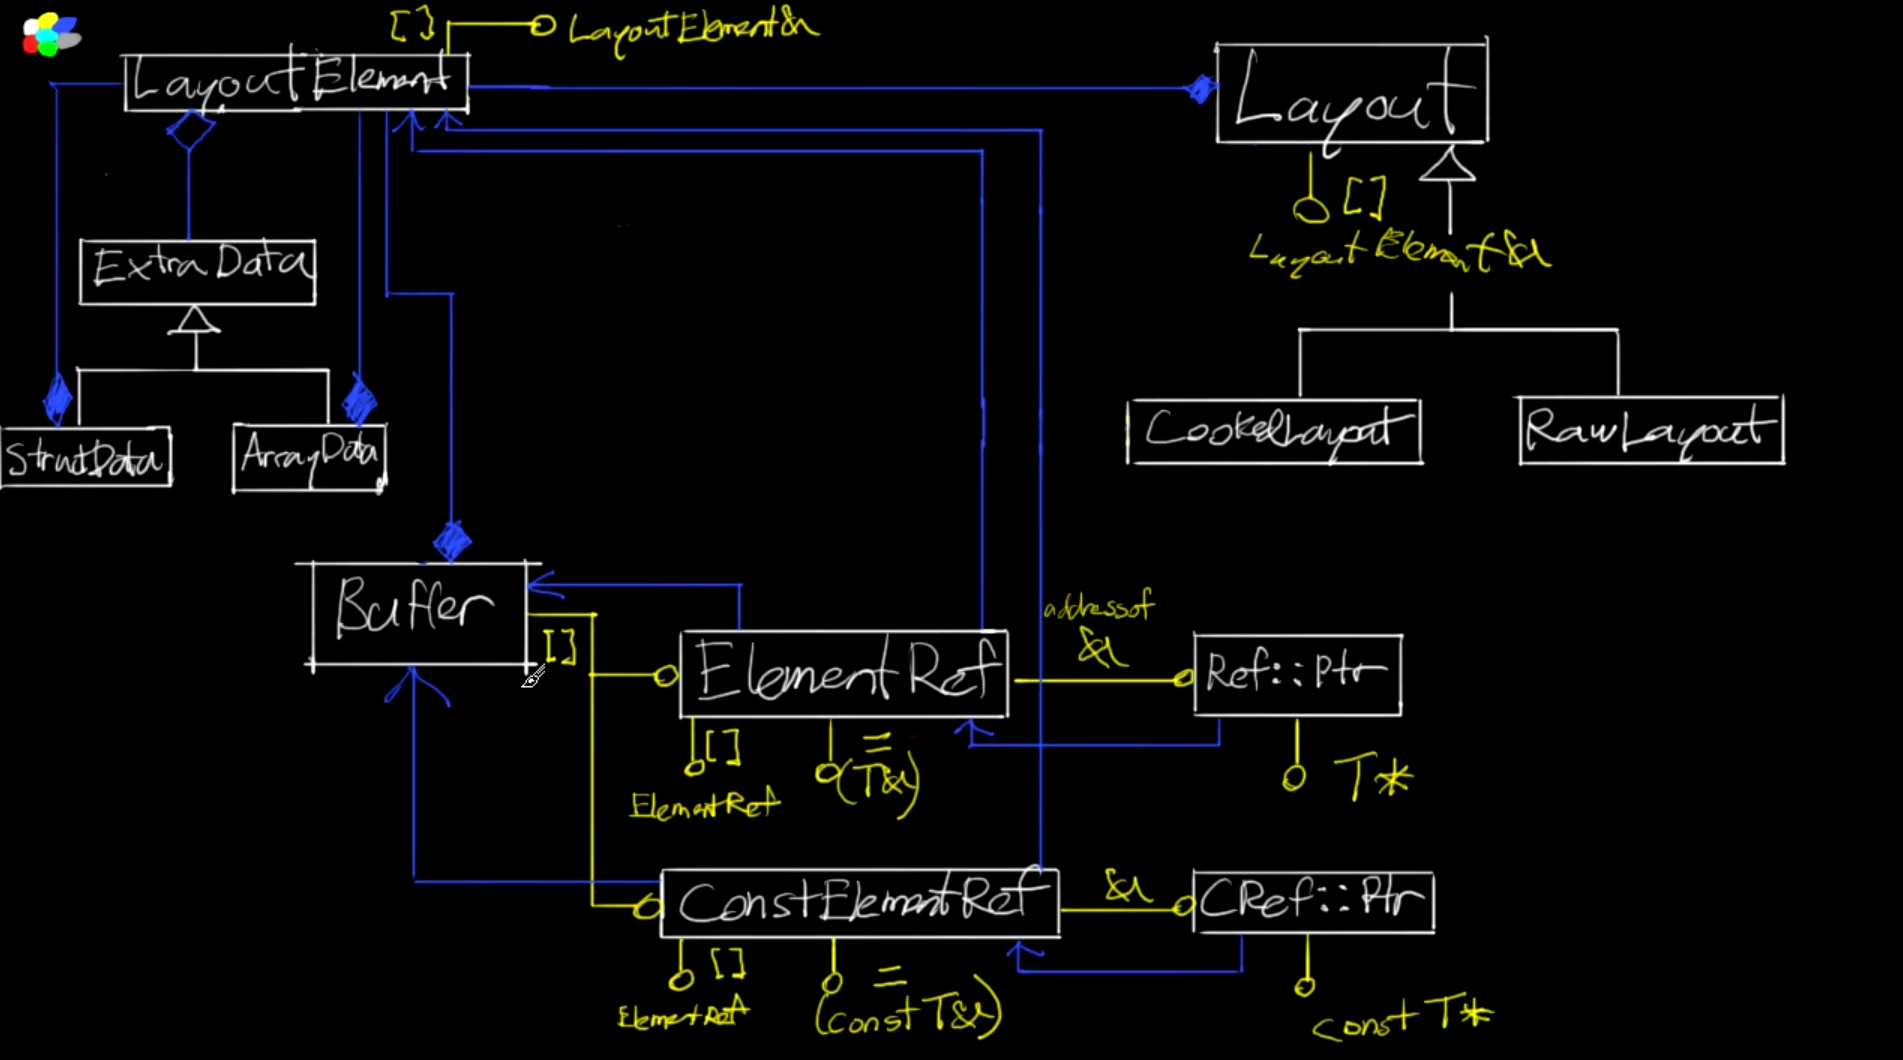 [] LayoutElement&
LayoutElement
Layout
[]
LayoutElement&
ExtraData
StructData
ArrayData
CookedLayout
RawLayout
Buffer
[]
ElementRef
addressof
&
Ref::Ptr
[]
ElementRef
=
(T&)
T*
ConstElementRef
&
CRef::Ptr
[]
ElementRef
=
(const T&)
const T*